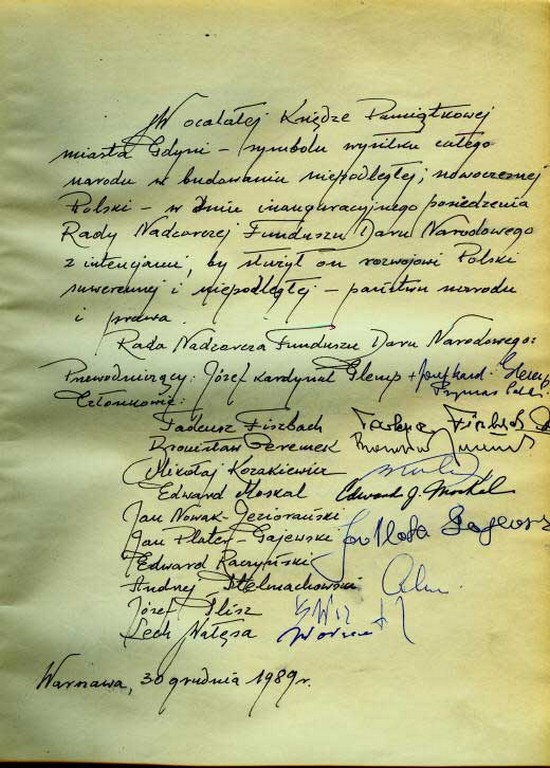 W ocalałej Księdze Pamiątkowej
miasta Gdyni – symbolu wysiłku całego
narodu w budowaniu niepodległej, nowoczesnej
Polski – w dniu inauguracyjnego posiedzenia
Rady Nadzorczej Funduszu Daru Narodowego
z intencjami, by służył on rozwojowi Polski
suwerennej i niepodległej – państwu narodu
i prawa.
Rada Nadzorcza Funduszu Daru Narodowego:
Przewodniczący: Józef kardynał Glemp + Józef kard. Glemp
Członkowie: Prymas
Tadeusz Fiszbach Tadeusz Fiszbach
Bronisław Geremek
Mikołaj Kozakiewicz
Edward Moskal Edward J. Moskal
Jan Nowak-Jeziorański
Jan Plater-Gajewski Jan Plater Gajewski
Edward Raczyński
Andrzej Stelmachowski
Józef Ślisz
Lech Wałęsa
Warszawa, 30 grudnia 1989 r.